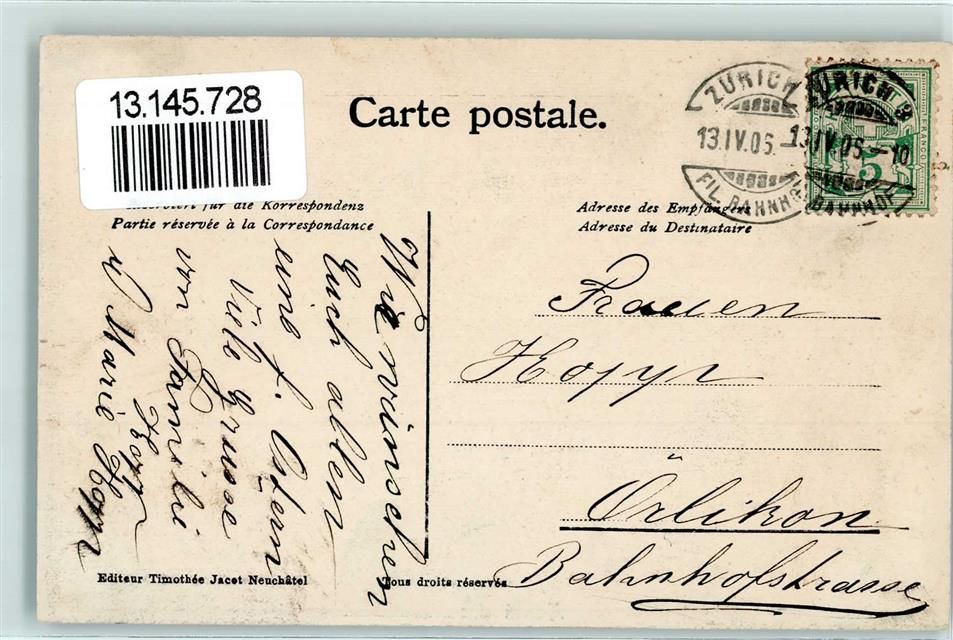 13.145.728
Carte postale.
ZÜRICH
13.IV.05.
FIL. BAHNHOF
ZÜRICH
13.IV.05.-10
BAHNHOF
FRANCO
5
für die Korrespondenz
Partie réservée à la Correspondance
Adresse des Empfängers
Adresse du Destinataire
Wir wünschen
Euch allen
eine f. Ostern
Viele Grüsse
von Familie
Kopp
u Marie Kopp
Frauen
Kopp
Örlikon
Bahnhofstrasse
Editeur Timothée Jacot Neuchâtel
Tous droits réservés